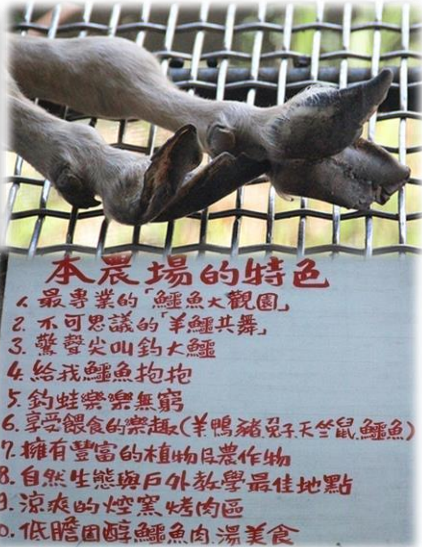 本農場的特色
1. 最專業的「鱷魚大觀園」
2. 不可思議的「羊鱷共舞」
3. 驚聲尖叫釣大鱷
4. 給我鱷魚抱抱
5. 釣蛙樂樂無窮
6. 享受餵食的樂趣(羊鴨豬兔子天竺鼠鱷魚)
7. 擁有豐富的植物與農作物
8. 自然生態與戶外教學最佳地點
9. 涼爽的焢窯烤肉區
0. 低膽固醇鱷魚肉.湯美食